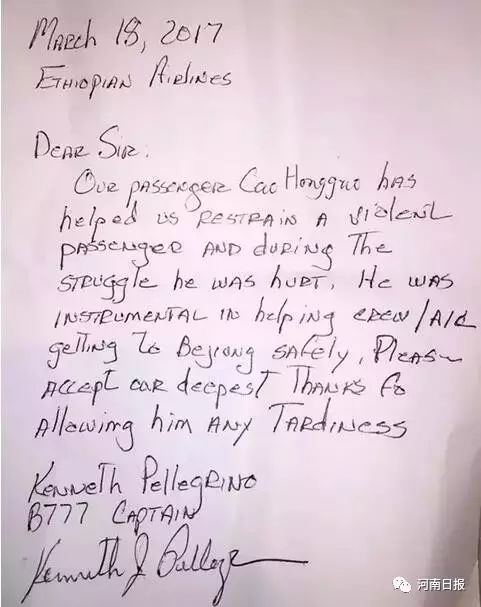 March 18, 2017
Ethiopian Airlines
Dear Sir:
Our passenger Cao Hongguo has
helped us restrain a violent
passenger and during the
struggle he was hurt. He was
instrumental in helping crew/A/C
getting to Bejiong safely, Please
accept our deepest thanks fo
allowing him any Tardiness
Kenneth Pellegrino
B777 Captain
Kenneth J Pellegr
河南日报